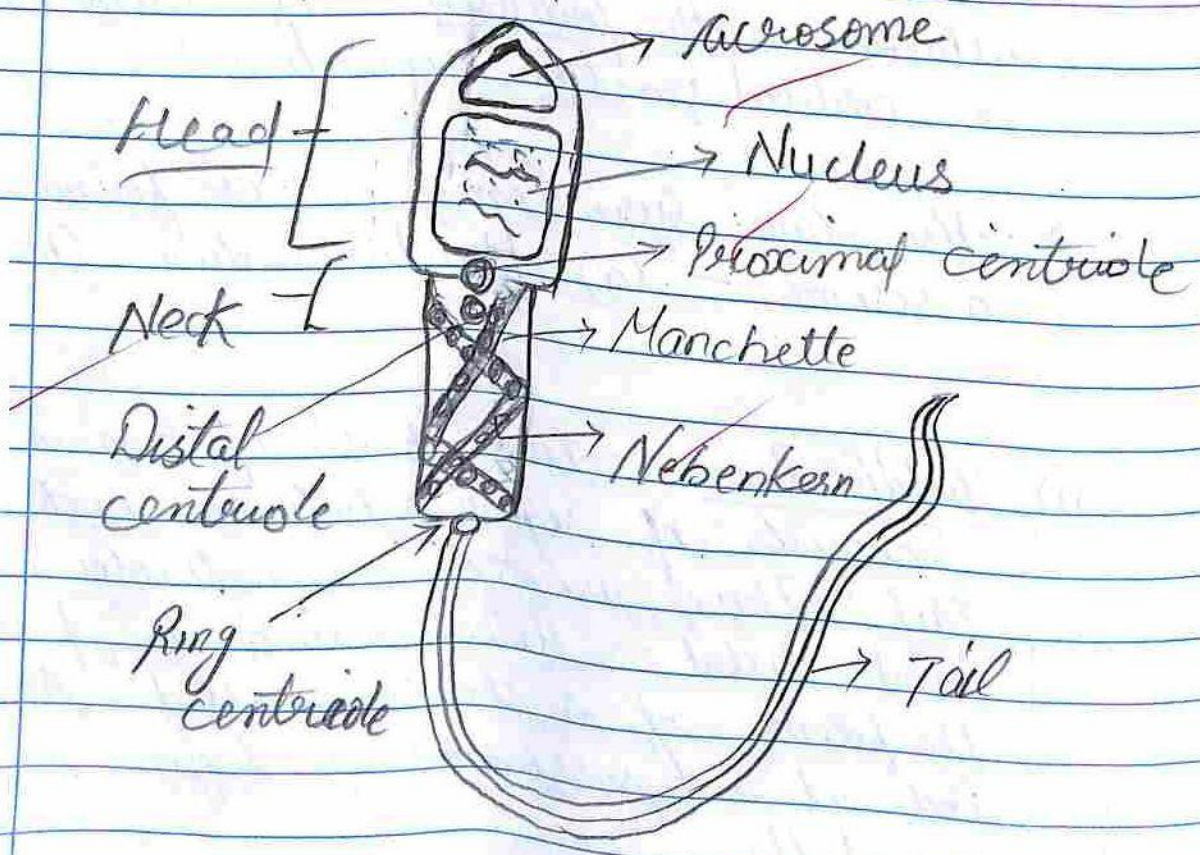 acrosome
Head
Nucleus
Proximal centriole
Neck
Manchette
Distal
centriole
Nebenkern
Ring
centriole
Tail